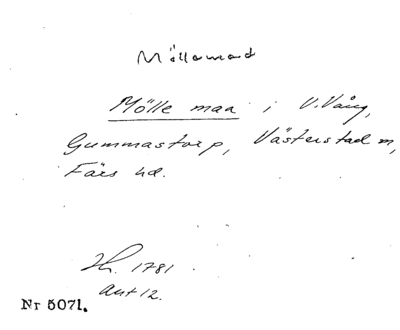 Möllamad
Mölle maa i V. Vång,
Gummastorp, Västerstad sn,
Färs hd.
Sk. 1781
Akt 12.
Nr 5071.